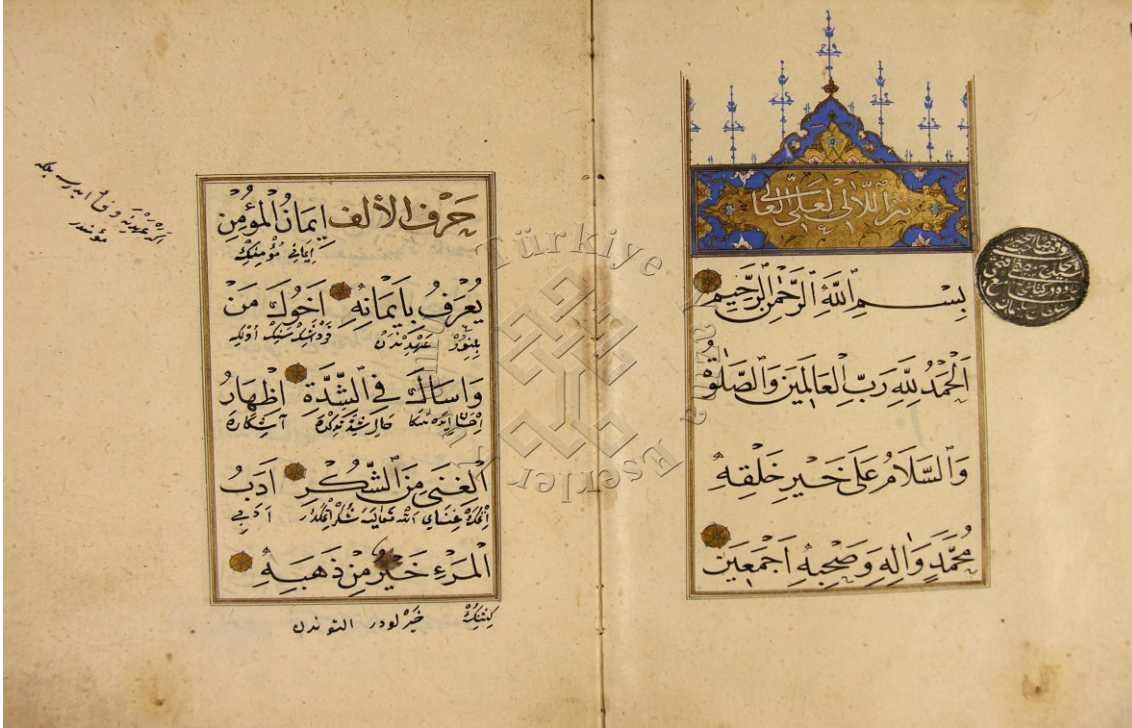 نثر اللآلى لعلى العالى
بِسْمِ اللَّهِ الرَّحْمٰنِ الرَّحِيمِ
اَلْحَمْدُ لِلّهِ رَبِّ الْعَالَمِينَ وَالصَّلٰوةُ
وَالسَّلَامُ عَلَى خَيْرِ خَلْقِهِ
مُحَمَّدٍ وَاٰلِهِ وَصَحْبِهِ اَجْمَعِينَ
حَرْفُ الْأَلِفِ اِيمَانُ الْمُؤْمِنِ
ايمانى مؤمنك
يُعْرَفُ بِاَيْمَانِهِ اَخُوكَ مَنْ
بلنور عهدندن قرداشك سنك اولكه
وَاسَاكَ فِي الشِّدَّةِ اِظْهَارُ
احسان ايده سكا حال شدتكده آشكاره
الْغِنَى مِنَ الشُّكْرِ اَدَبُ
اتمك غناى الله تعاليه شكر اتمكدر ادبى
الْمَرْءِ خَيْرٌ مِنْ ذَهَبِهِ
كشينك خيرلودر التوندن
اكر عهدينه وفا ايدرسه بلكه
مؤمندر
Türkiye
Yazma
Eserler